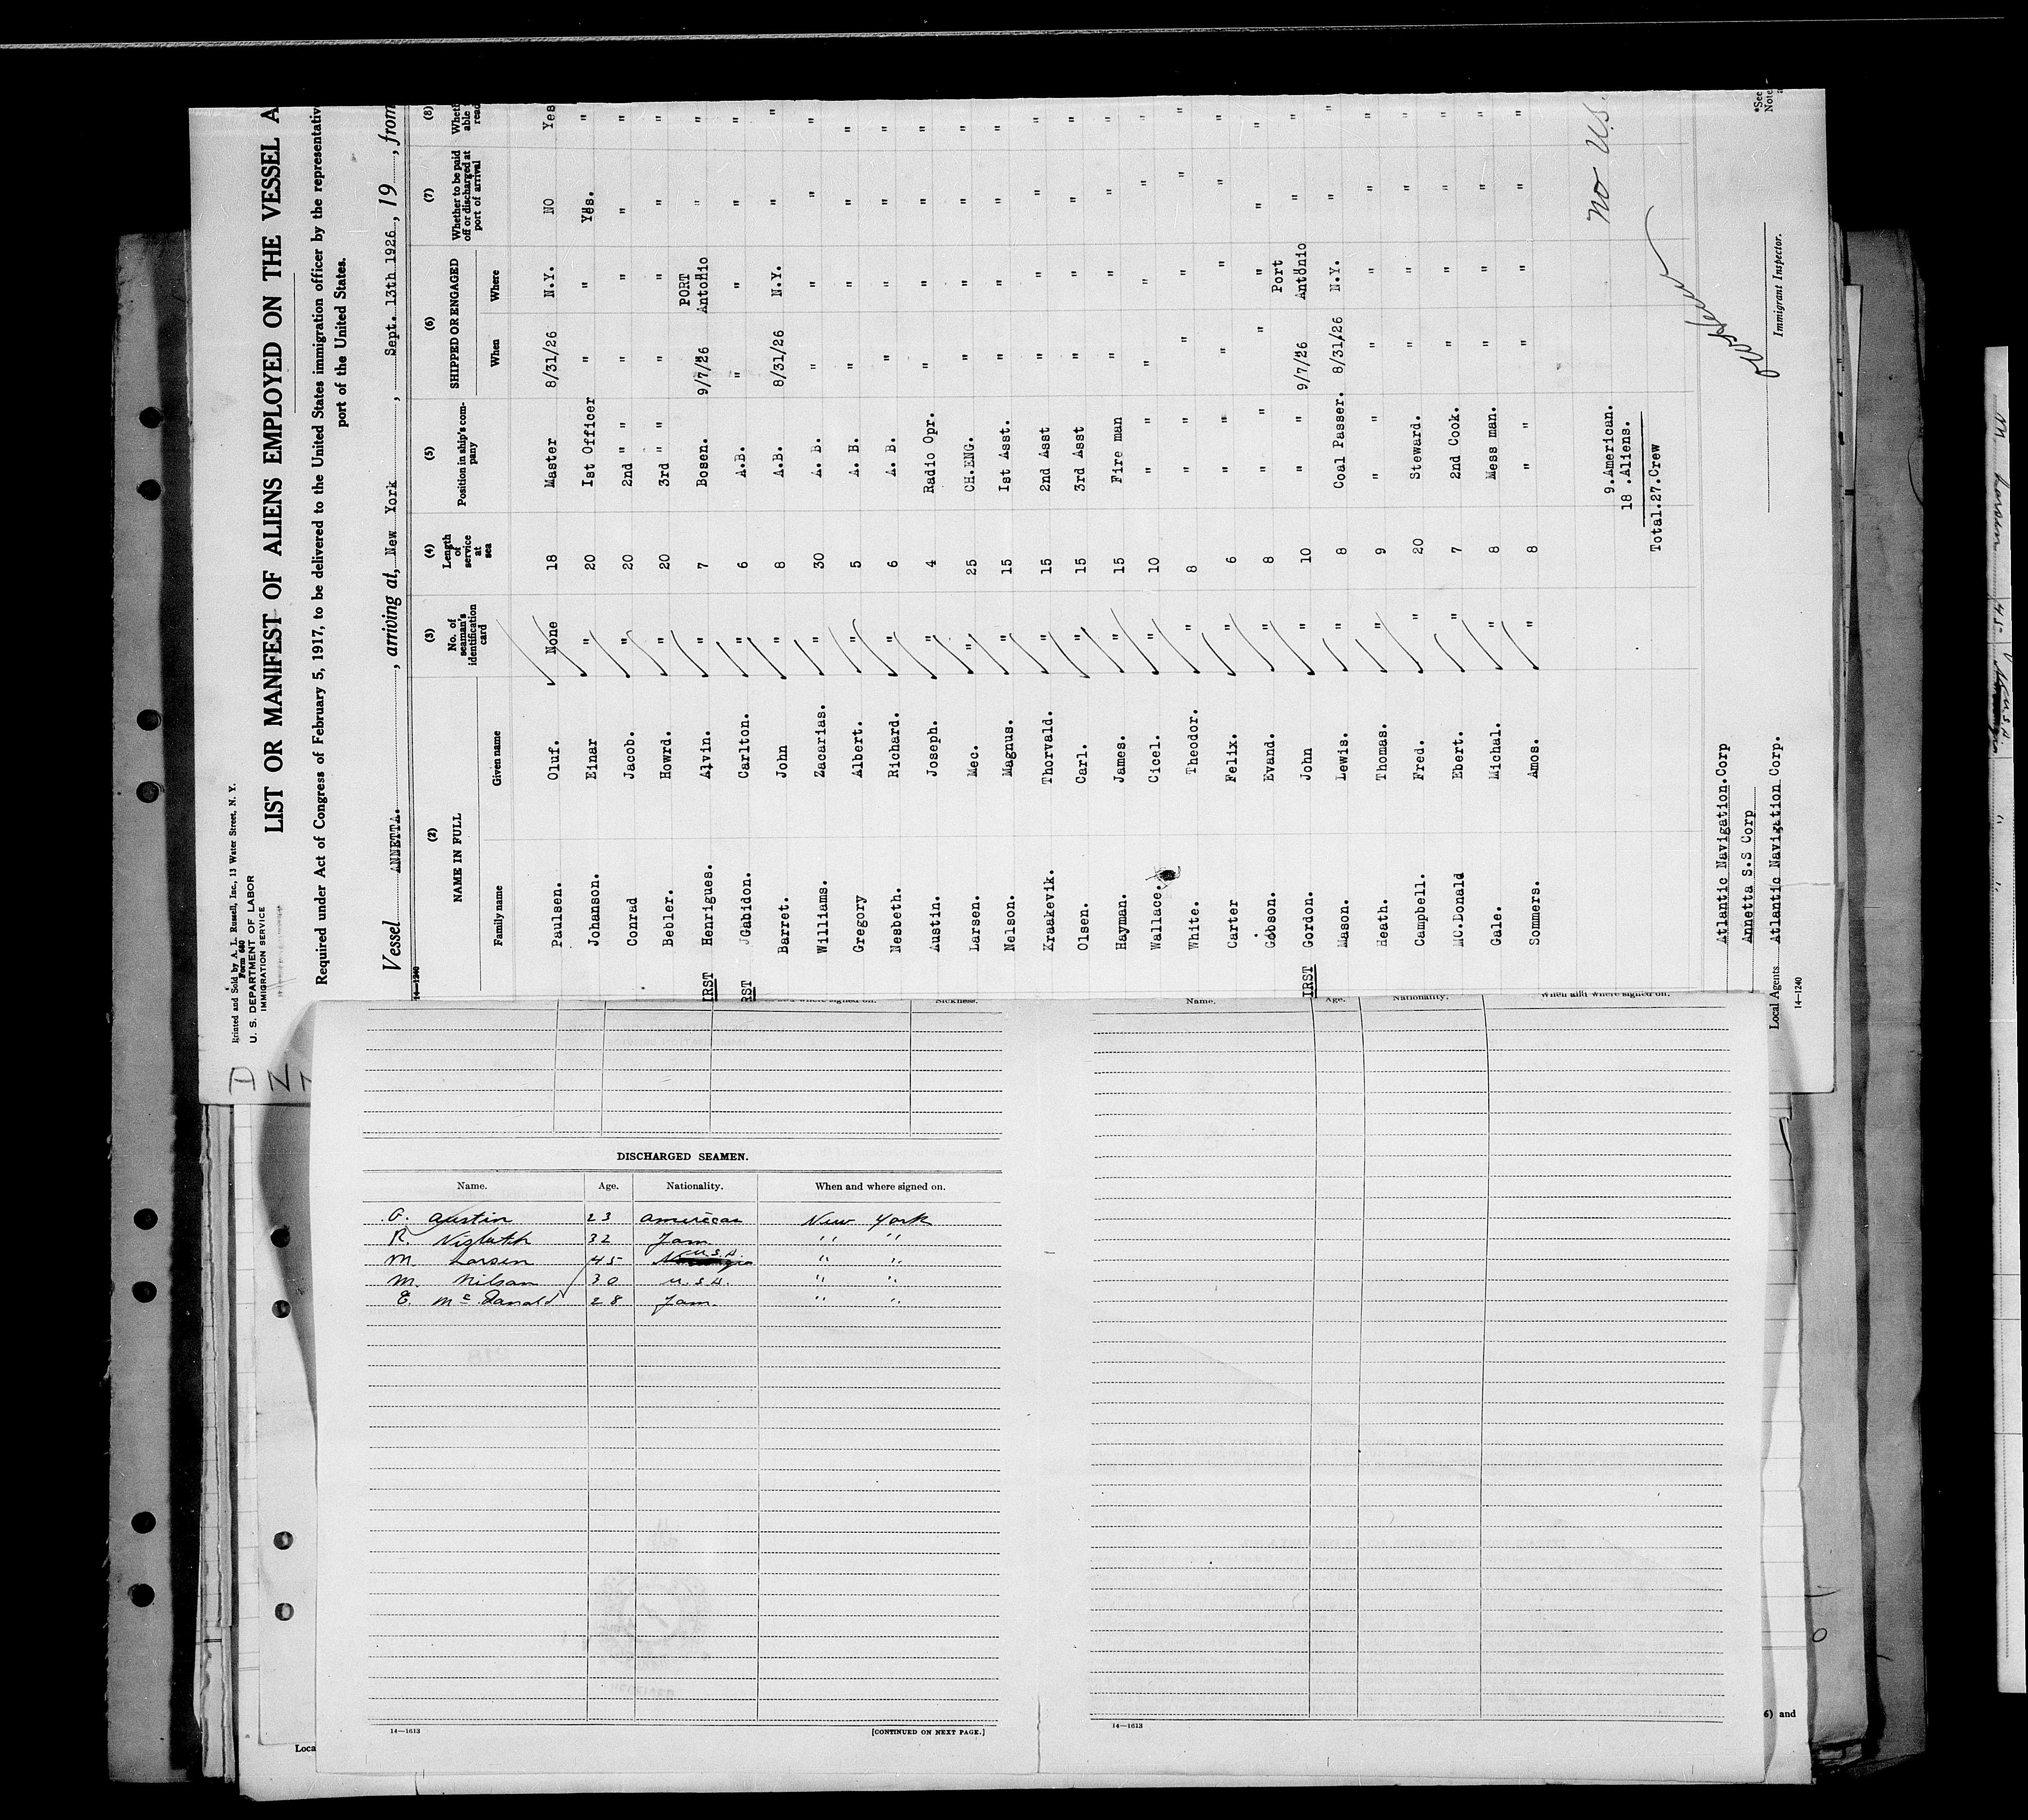 Printed and Sold by A. L. Russell, Inc., 13 Water Street, N. Y.
Form 680
U. S. DEPARTMENT OF LABOR
IMMIGRATION SERVICE
ANN
LIST OR MANIFEST OF ALIENS EMPLOYED ON THE VESSEL A
Required under Act of Congress of February 5, 1917, to be delivered to the United States immigration officer by the representativ
port of the United States.
Vessel ANNETTA. , arriving at, New York , Sept. 13th 1926 , 19 , from
14—1240
(2) (3) (4) (5) (6) (7) (8)
NAME IN FULL No. of seaman's identification card Length of service at sea Position in ship's company SHIPPED OR ENGAGED Whether to be paid off or discharged at port of arrival Wheth able read
Family name Given name When Where
Paulsen. Oluf. None 18 Master 8/31/26 N.Y. NO Yes
Johanson. Einar " 20 1st Officer " " Yes. "
Conrad Jacob. " 20 2nd " " " " " "
Bebler. Howrd. " 20 3rd " " " " " "
IRST Henrigues. Alvin. " 7 Bosen. 9/7/26 PORT Antonio " "
RST Gabidon. Carlton. " 6 A.B. " " " "
Barret. John " 8 A.B. 8/31/26 N.Y. " "
Williams. Zacarias. " 30 A. B. " " " "
Gregory Albert. " 5 A. B. " " " "
Nesbeth. Richard. " 6 A. B. " " " "
Austin. Joseph. " 4 Radio Opr. " " " "
Larsen. Mec. " 25 CH.ENG. " " " "
Nelson. Magnus. " 15 1st Asst. " " " "
Kraakevik. Thorvald. " 15 2nd Asst " " " "
Olsen. Carl. " 15 3rd Asst " " " "
Hayman. James. " 15 Fire man " " " "
Wallace. Cicel. " 10 " " " " " "
White. Theodor. " 8 " " " " " "
Carter Felix. " 6 " " " " " "
Gobson. Evand. " 8 " " " " " "
IRST Gordon. John " 10 " " 9/7/26 Port Antonio " "
Mason. Lewis. " 8 Coal Passer. 8/31/26 N.Y. " "
Heath. Thomas. " 9 " " " " "
Campbell. Fred. " 20 Steward. " " " "
MC.Donald Ebert. " 7 2nd Cook. " " " "
Gale. Michal. " 8 Mess man. " " " "
Sommers. Amos. " 8 " " " " " "
9.American.
18 .Aliens.
Total.27.Crew
No U.S.
Atlantic Navigation.Corp
Annetta S.S Corp
Local Agents Atlantic Navigation Corp.
Immigrant Inspector.
*See
Note
14—1240
and where signed on. Sickness.
Name. Age. Nationality. When and where signed on.
DISCHARGED SEAMEN.
Name. Age. Nationality. When and where signed on.
Austin 23 American New York
R. 32 Jam. " "
M. Larsen 45 U.S.A. " "
M. Nilsan 30 U.S.A. " "
E. Mc Danald 28 Jam. " "
14—1613
[CONTINUED ON NEXT PAGE.]
14—1613
Loca
6) and